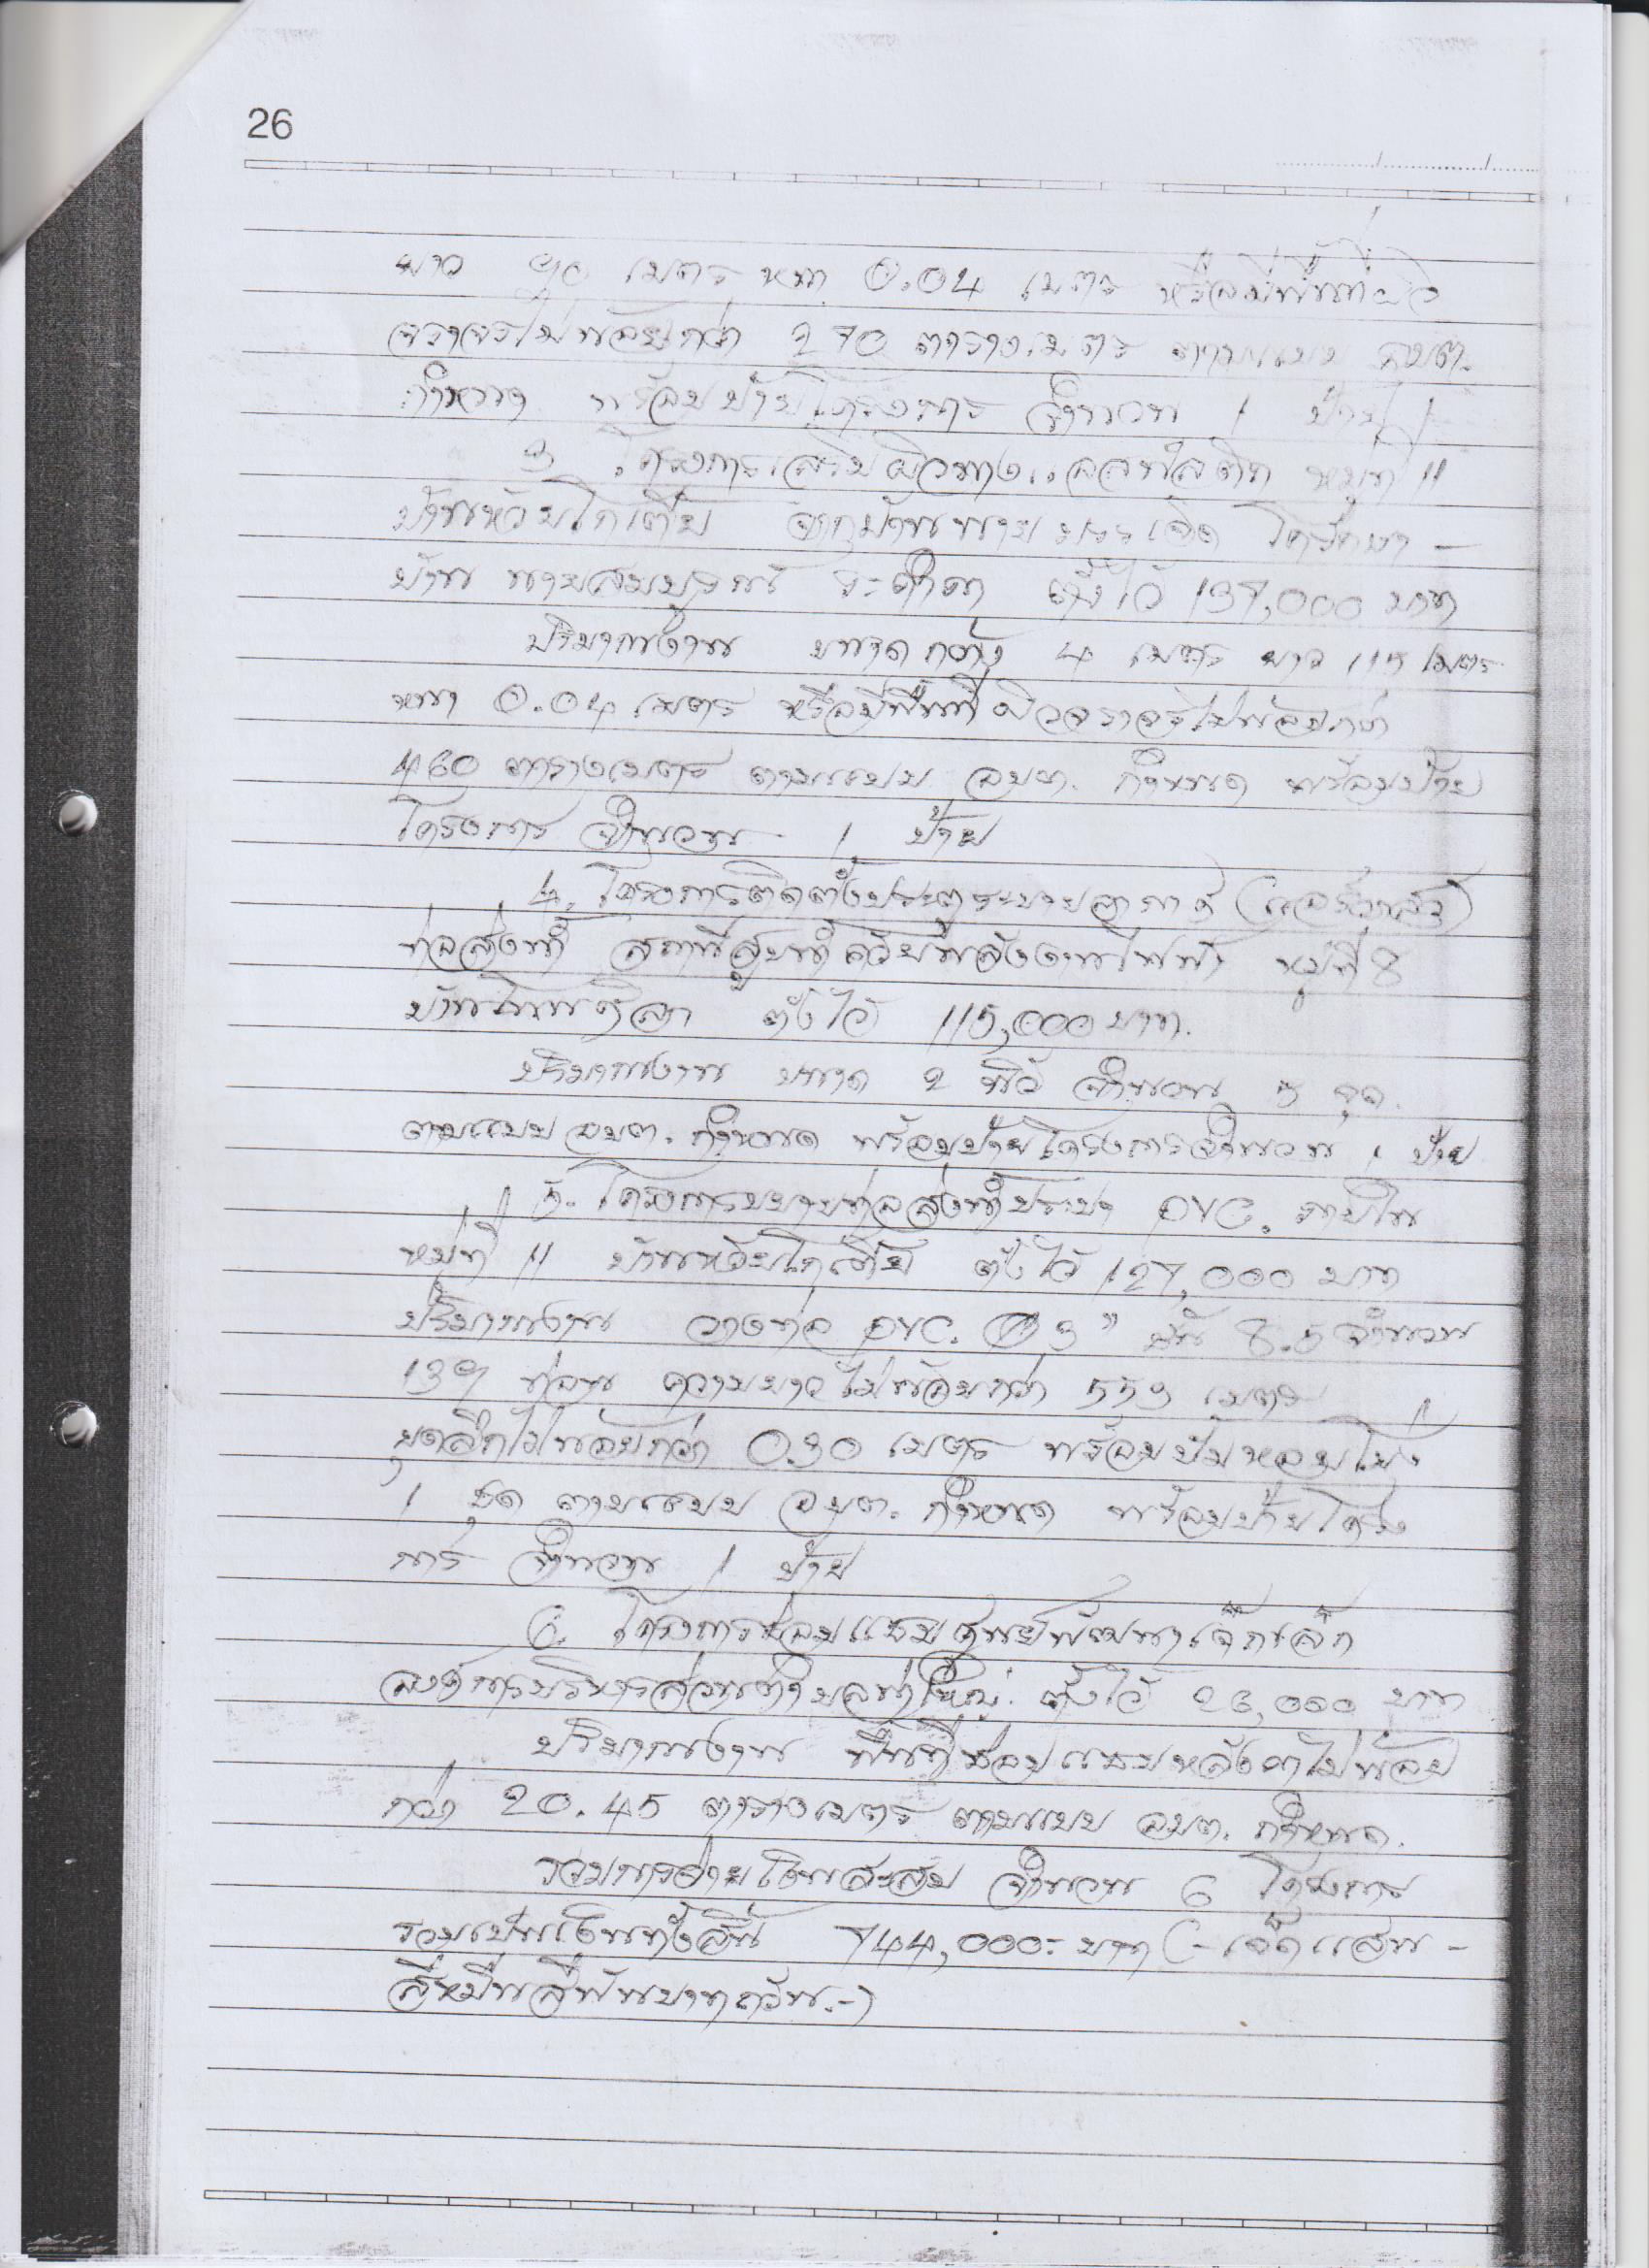 26
ยาว 90 เมตร หนา 0.04 เมตร หรือมีพื้นที่ผิว
จราจรไม่น้อยกว่า 270 ตารางเมตร ตามแบบ อบต.
กำหนด พร้อมป้ายโครงการ จำนวน 1 ป้าย
3 โครงการเสริมผิวทางแอสฟัลติก หมู่ที่ 11
บ้านห้วยไก่เตี้ย จากบ้านนายประเจิด -
บ้าน นายสมบูรณ์ ตั้งไว้ 197,000 บาท
ปริมาณงาน ขนาดกว้าง 4 เมตร ยาว 115 เมตร
หนา 0.04 เมตร หรือมีพื้นที่ผิวจราจรไม่น้อยกว่า
460 ตารางเมตร ตามแบบ อบต. กำหนด พร้อมป้าย
โครงการ จำนวน 1 ป้าย
4. โครงการติดตั้งประตูระบายอากาศ (แอร์วาล์ว)
ท่อส่งน้ำ สถานีสูบน้ำด้วยพลังงานไฟฟ้า หมู่ที่ 8
บ้านโนนศิลา ตั้งไว้ 115,000 บาท.
ปริมาณงาน ขนาด 2 นิ้ว จำนวน 5 จุด.
ตามแบบ อบต. กำหนด พร้อมป้ายโครงการจำนวน 1 ป้าย
5. โครงการขยายท่อส่งน้ำประปา PVC. ภายใน
หมู่ที่ 11 บ้านห้วยไก่เตี้ย ตั้งไว้ 127,000 บาท
ปริมาณงาน วางท่อ PVC. Ø 3" ชั้น 8.5 จำนวน
139 ท่อน ความยาวไม่น้อยกว่า 553 เมตร
ขุดลึกไม่น้อยกว่า 0.30 เมตร พร้อมปั๊มหอยโข่ง
1 ชุด ตามแบบ อบต. กำหนด พร้อมป้ายโครง
การ จำนวน 1 ป้าย
6. โครงการซ่อมแซมศูนย์พัฒนาเด็กเล็ก
องค์การบริหารส่วนตำบลท่าใหญ่ ตั้งไว้ 23,000 บาท
ปริมาณงาน พื้นที่ซ่อมแซมหลังคาไม่น้อย
กว่า 20.45 ตารางเมตร ตามแบบ อบต. กำหนด.
รวมการจ่ายเงินสะสม จำนวน 6 โครงการ
รวมเป็นเงินทั้งสิ้น 744,000.- บาท (- เจ็ดแสน -
สี่หมื่นสี่พันบาทถ้วน.-)